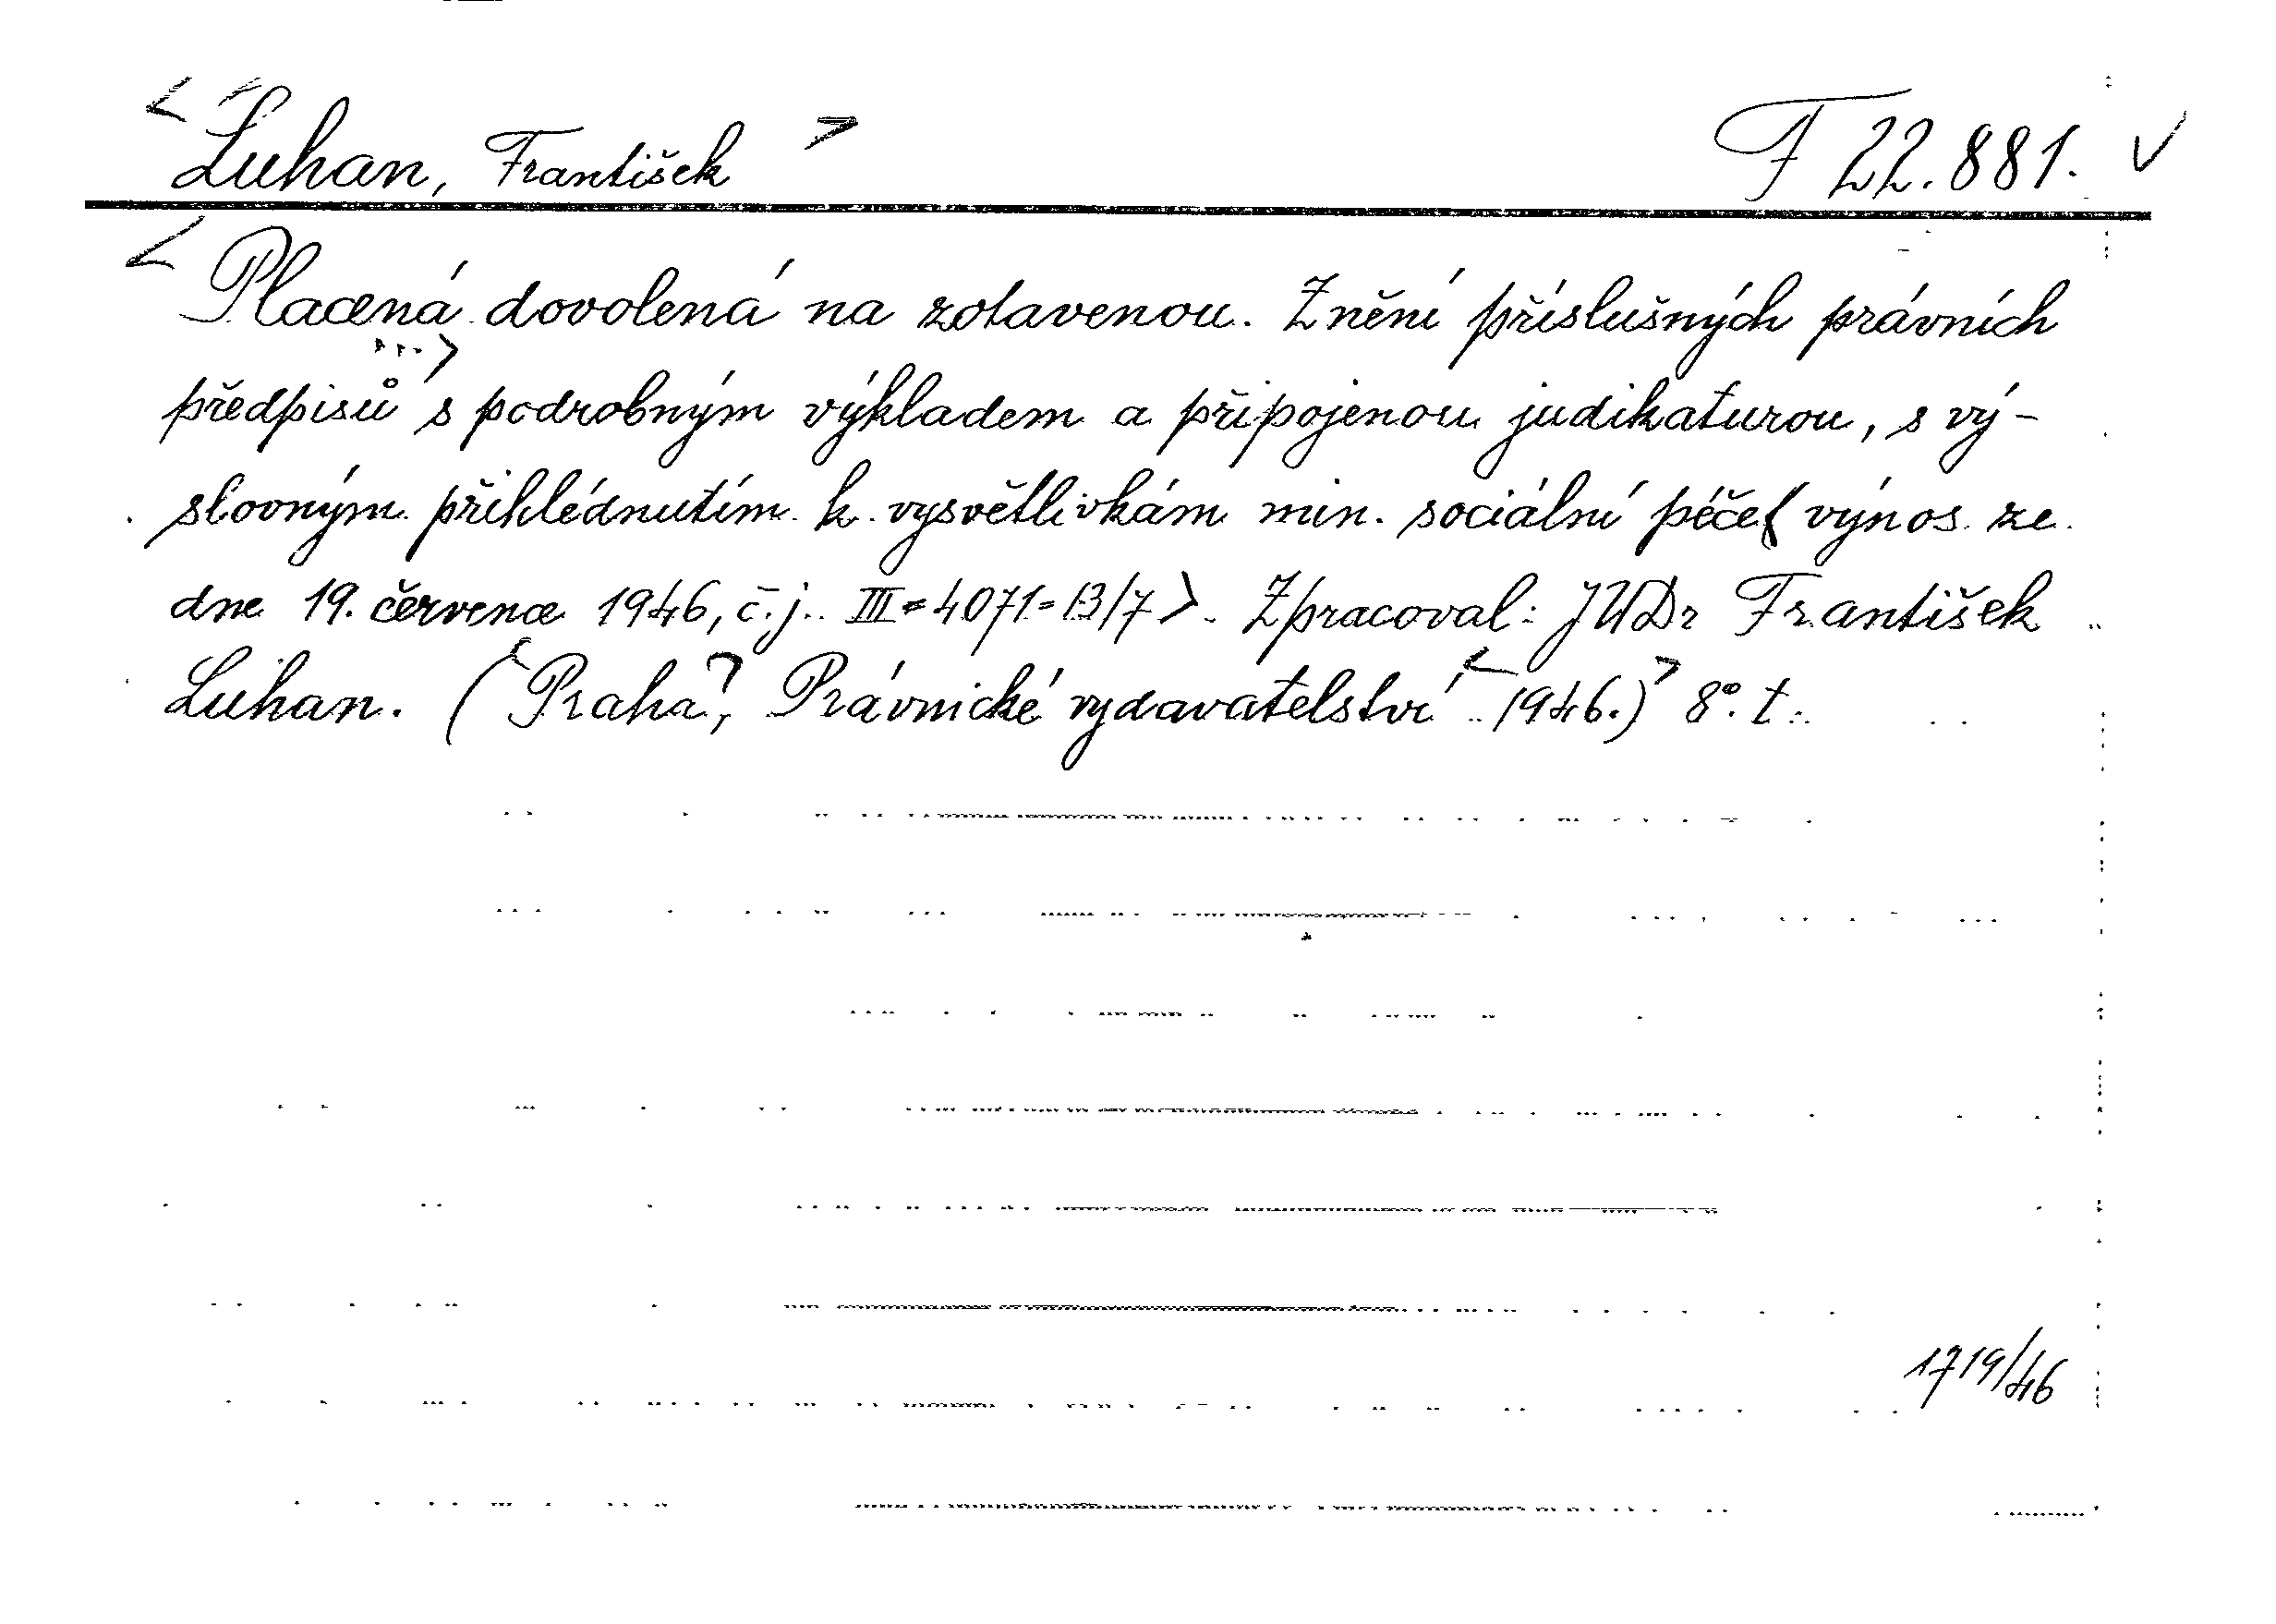 < Luhan, František > F 22.881. ✓
< Placená dovolená na zotavenou. Znění příslušných právních
...>
předpisů s podrobným výkladem a připojenou judikaturou, s vý-
slovným přihlédnutím k vysvětlivkám min. sociální péče ( výnos ze
dne 19. července 1946, č.j. III=4071=13/7 ). Zpracoval: JUDr František
Luhan. ( < Praha >, Právnické vydavatelství < 1946.) > 8°. t.
1719/46